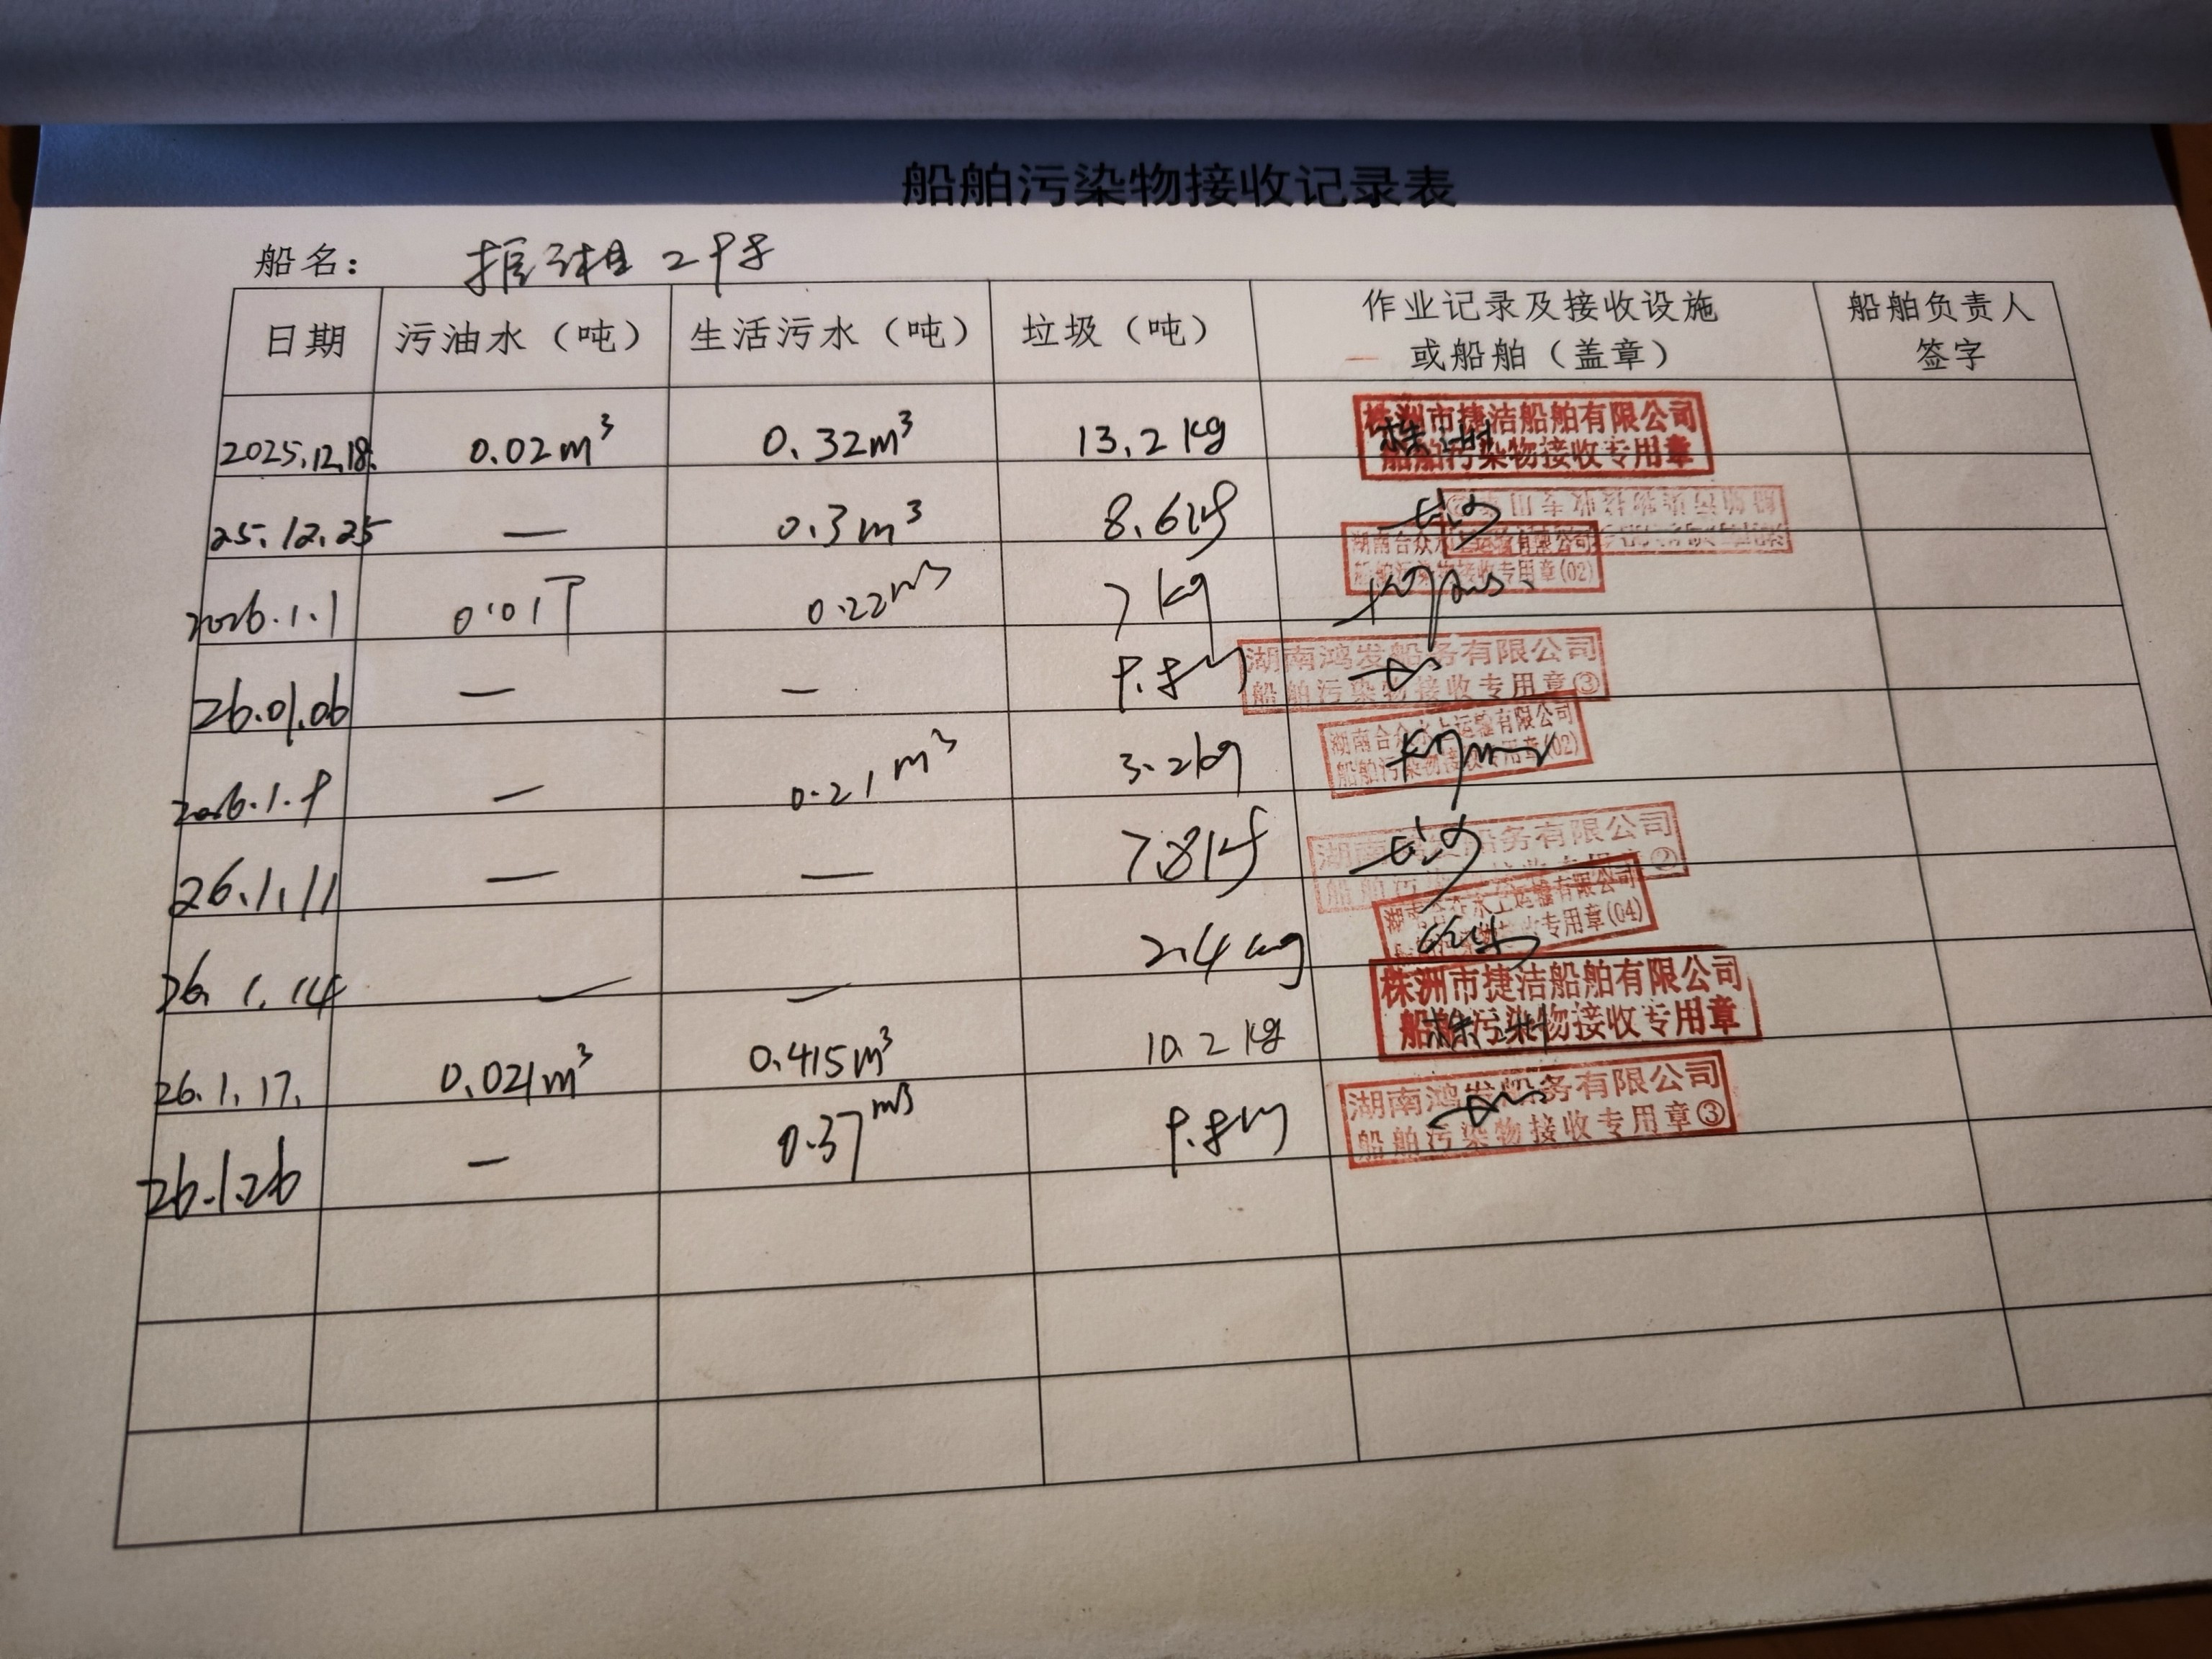 船舶污染物接收记录表
船名：
日期 污油水（吨） 生活污水（吨） 垃圾（吨） 作业记录及接收设施 船舶负责人
或船舶（盖章） 签字
2025.12.18. 0.02m³ 0.32m³ 13.2kg 株洲市捷洁船舶有限公司
船舶污染物接收专用章
25.12.25 — 0.3m³ 8.6kg
船舶污染物接收专用章②
湖南合众水上运输有限公司
船舶污染物接收专用章(02)
2026.1.1 0.01T 0.22m³ 7kg
26.01.06 — — 9.8kg 湖南鸿发船务有限公司
船舶污染物接收专用章③
2026.1.9 — 0.21m³ 3.2kg 湖南合众水上运输有限公司
船舶污染物接收专用章(02)
26.1.11 — — 7.8kg 湖南鸿发船务有限公司
26.1.14 — — 2.4kg 湖南合众水上运输有限公司
专用章(04)
26.1.17. 0.021m³ 0.415m³ 10.2kg 株洲市捷洁船舶有限公司
船舶污染物接收专用章
26.1.26 — 0.37m³ 9.8kg 湖南鸿发船务有限公司
船舶污染物接收专用章③